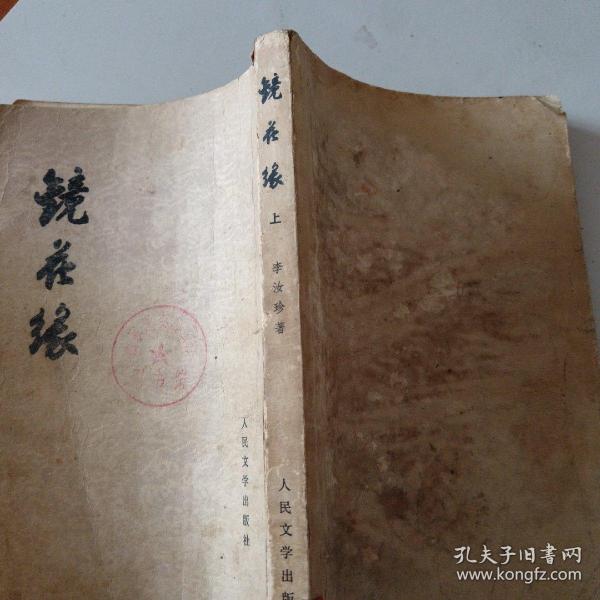 鏡花緣
人民文学出版社
鏡花緣
上
李汝珍著
人民文学出版
孔夫子旧书网
www.kongfz.com